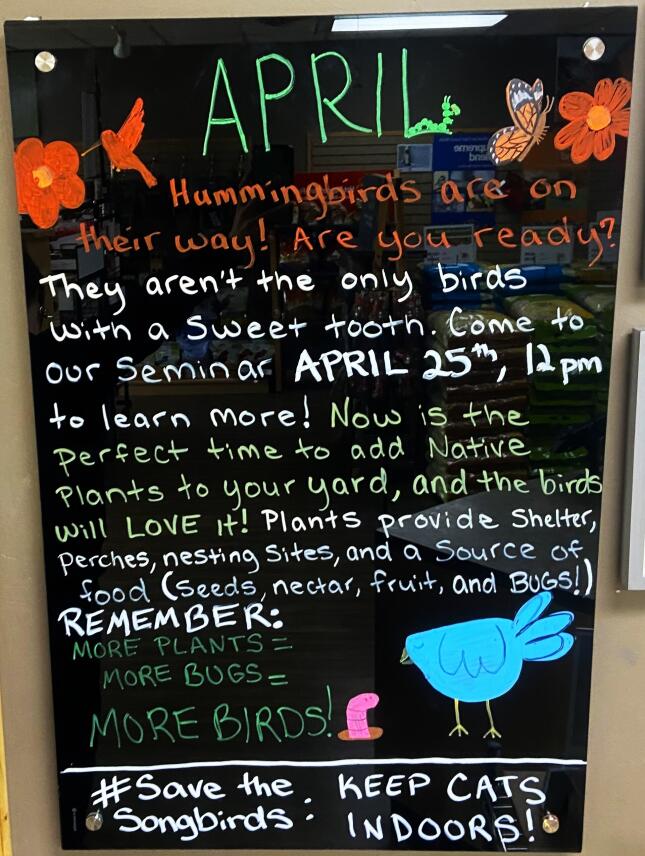 APRIL
Hummingbirds are on
their way! Are you ready?
They aren't the only birds
with a sweet tooth. Come to
our Seminar APRIL 25th, 12pm
to learn more! Now is the
perfect time to add Native
Plants to your yard, and the birds
will LOVE it! Plants provide Shelter,
Perches, nesting Sites, and a Source of
food (Seeds, nectar, fruit, and BUGS!)
REMEMBER:
MORE PLANTS =
MORE BUGS =
MORE BIRDS!
#Save the
Songbirds: KEEP CATS
INDOORS!